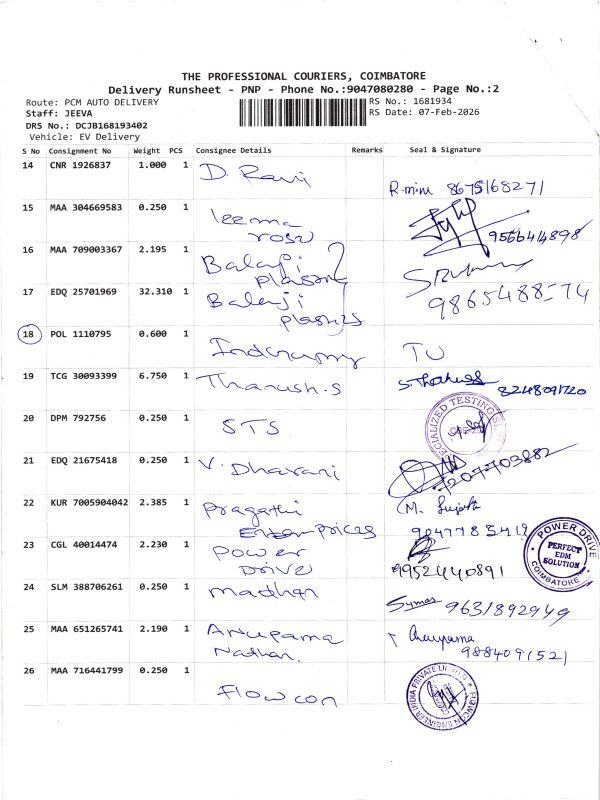 THE PROFESSIONAL COURIERS, COIMBATORE
Delivery Runsheet - PNP - Phone No.:9047080280 - Page No.:2
Route: PCM AUTO DELIVERY
RS No.: 1681934
Staff: JEEVA
RS Date: 07-Feb-2026
DRS No.: DCJB168193402
Vehicle: EV Delivery
S No Consignment No Weight PCS Consignee Details Remarks Seal & Signature
14 CNR 1926837 1.000 1 D. Ravi
8675168271
15 MAA 304669583 0.250 1 leema
rose
9566414898
16 MAA 709003367 2.195 1 Balaji
plastics
17 EDQ 25701969 32.310 1 Balaji
plastics
18 POL 1110795 0.600 1
19 TCG 30093399 6.750 1 Tharush.S
8248091720
20 DPM 792756 0.250 1 STS
SPECIALIZED TESTING
21 EDQ 21675418 0.250 1 V. Dharani
22 KUR 7005904042 2.385 1 Pragathi
Enterprices
23 CGL 40014474 2.230 1 Power
Drive
9952440891
POWER DRIVE
PERFECT
EDM
SOLUTION
COIMBATORE
24 SLM 388706261 0.250 1 madhan
9631892949
25 MAA 651265741 2.190 1 Anupama
Nathan.
9884091521
26 MAA 716441799 0.250 1 Flowcon
FLOWCON ENGINEER INDIA PRIVATE LIMITED